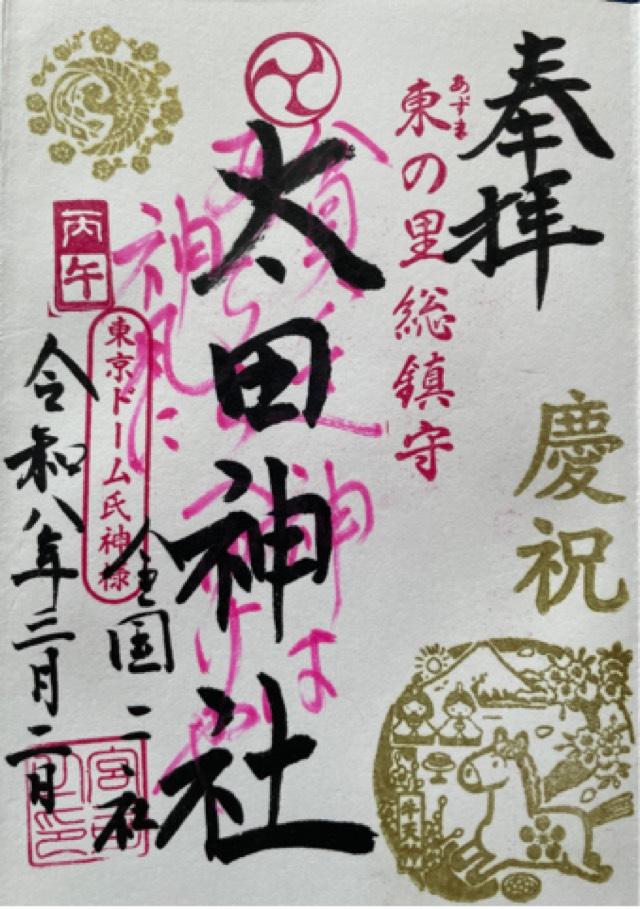 奉拝
慶祝
東の里総鎮守
あずま
太田神社
神風に
神は
全国二社
東京ドーム氏神様
丙午
令和八年三月二日
牛天神